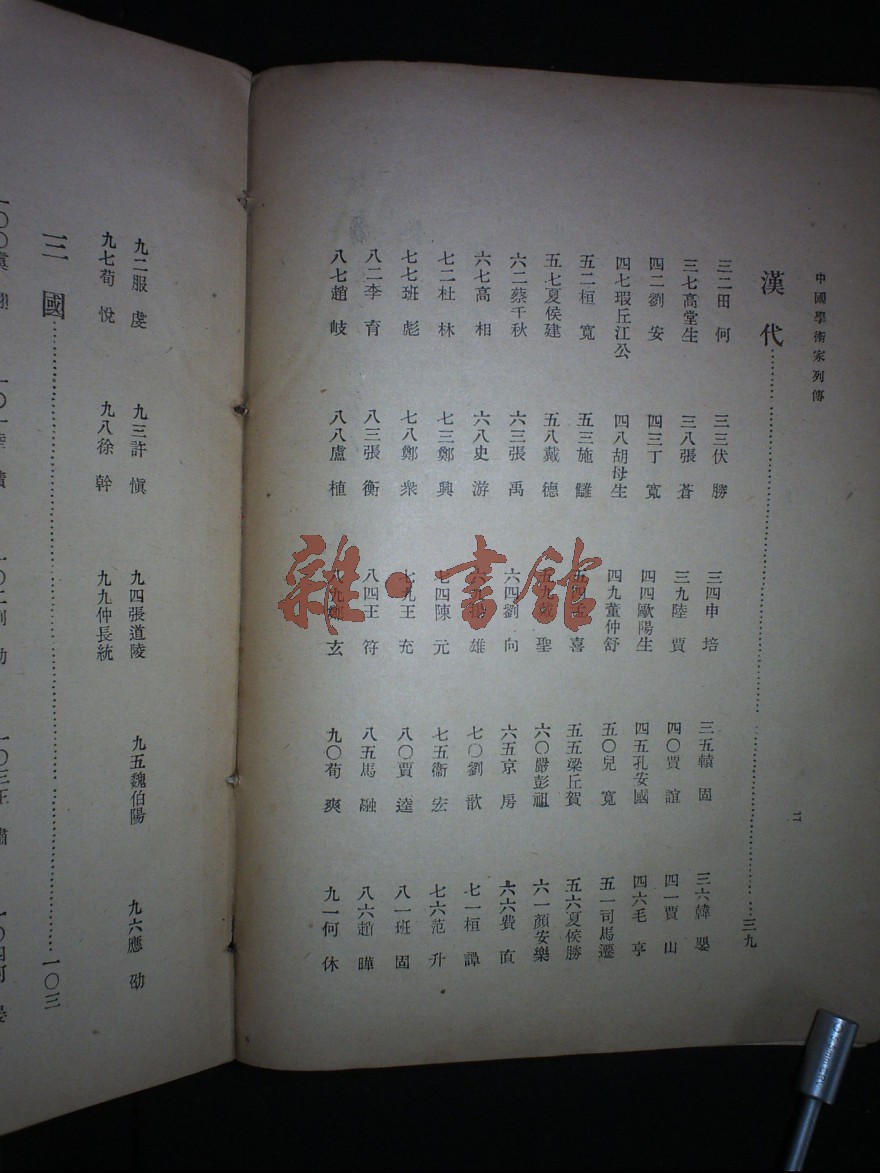 中國學術家列傳
漢代……三九
三二田何 三三伏勝 三四申培 三五轅固 三六韓嬰
三七高堂生 三八張蒼 三九陸賈 四〇賈誼 四一賈山
四二劉安 四三丁寬 四四歐陽生 四五孔安國 四六毛亨
四七瑕丘江公 四八胡母生 四九董仲舒 五〇兒寬 五一司馬遷
五二桓寬 五三施讎 五四孟喜 五五梁丘賀 五六夏侯勝
五七夏侯建 五八戴德 五九戴聖 六〇嚴彭祖 六一顏安樂
六二蔡千秋 六三張禹 六四劉向 六五京房 六六費直
六七高相 六八史游 六九 雄 七〇劉歆 七一桓譚
七二杜林 七三鄭興 七四陳元 七五衞宏 七六范升
七七班彪 七八鄭衆 七九王充 八〇賈逵 八一班固
八二李育 八三張衡 八四王符 八五馬融 八六趙曄
八七趙岐 八八盧植 八九鄭玄 九〇荀爽 九一何休
九二服虔 九三許愼 九四張道陵 九五魏伯陽 九六應劭
九七荀悅 九八徐幹 九九仲長統
三國……一〇三
雜·書館